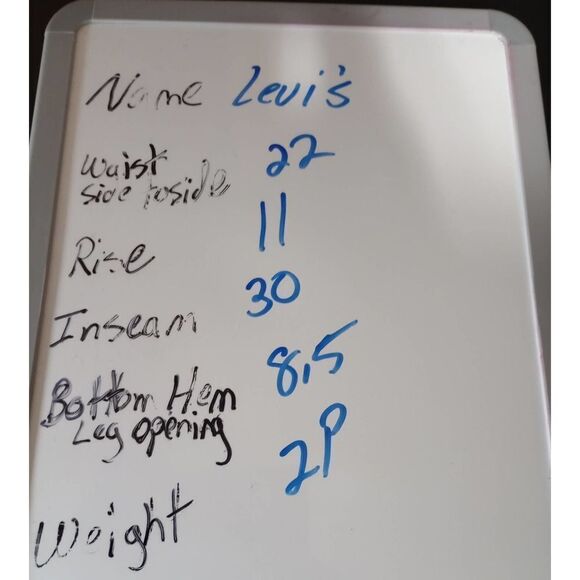 Name Levi's
Waist side to side 22
Rise 11
Inseam 30
Bottom Hem 8,5
Leg opening
Weight 2P